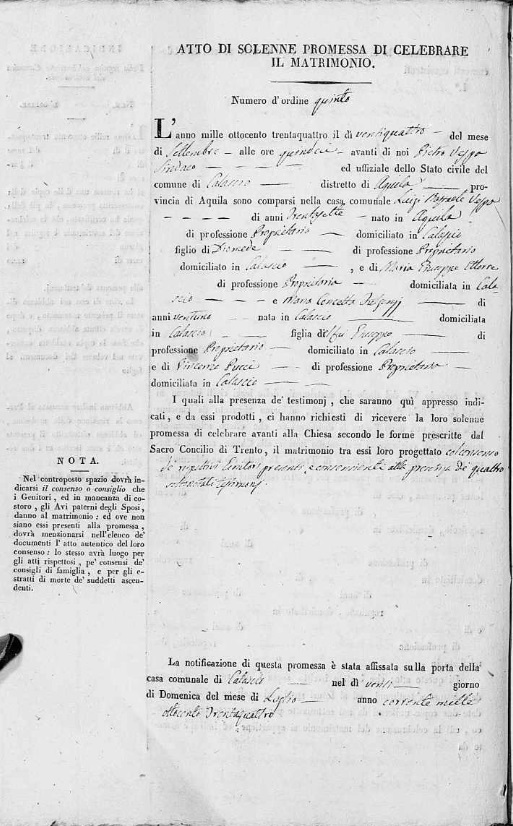 ATTO DI SOLENNE PROMESSA DI CELEBRARE
IL MATRIMONIO.
Numero d'ordine quinto
L'anno mille ottocento trentaquattro il dì ventiquattro del mese
di Settembre alle ore quindici avanti di noi Pietro
Sindaco ed uffiziale dello Stato civile del
comune di Calascio distretto di Aquila pro-
vincia di Aquila sono comparsi nella casa comunale Luigi Raffaele
di anni Trentasette nato in Aquila
di professione Proprietario domiciliato in Calascio
figlio di Diomede di professione Proprietario
domiciliato in Calascio , e di Maria Giuseppa
di professione Proprietaria domiciliata in Cala-
scio e Maria Concetta di
anni ventuno nata in Calascio domiciliata
in Calascio figlia del fu Giuseppe di
professione Proprietario domiciliato in Calascio
e di Vincenza di professione Proprietaria
domiciliata in Calascio
I quali alla presenza de' testimonj, che saranno quì appresso indi-
cati, e da essi prodotti, ci hanno richiesti di ricevere la loro solenne
promessa di celebrare avanti alla Chiesa secondo le forme prescritte dal
Sacro Concilio di Trento, il matrimonio tra essi loro progettato col consenso
de' rispettivi Genitori presenti, e consenzienti alla presenza de' quattro
sottoscritti testimonj
NOTA.
Nel controposto spazio dovrà in-
dicarsi il consenso o consiglio che
i Genitori, ed in mancanza di co-
storo, gli Avi paterni degli Sposi,
danno al matrimonio: ed ove non
siano essi presenti alla promessa,
dovrà menzionarsi nell'elenco de'
documenti l'atto autentico del loro
consenso: lo stesso avrà luogo per
gli atti rispettosi, pe' consensi de'
consigli di famiglia, e per gli e-
stratti di morte de' suddetti ascen-
denti.
La notificazione di questa promessa è stata affissata sulla porta della
casa comunale di Calascio nel dì venti giorno
di Domenica del mese di Luglio anno corrente mille
ottocento Trentaquattro